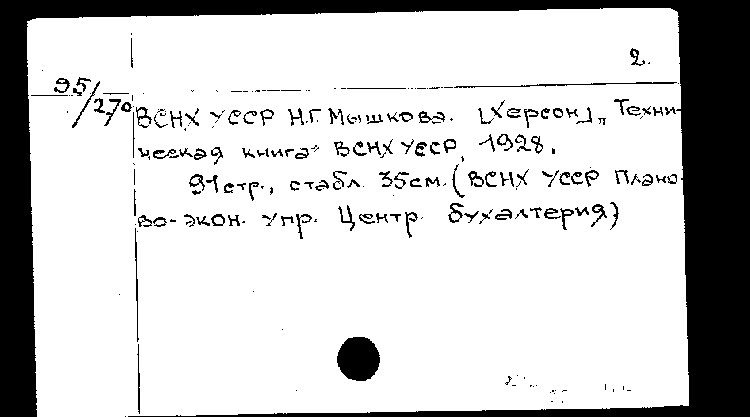 2.
95/270
ВСНХ УССР Н.Г. Мышкова. [Херсон] „Техни-
ческая книга" ВСНХ УССР, 1928.
91 стр., с табл. 35 см. (ВСНХ УССР Плано-
во-экон. упр. Центр. бухалтерия)